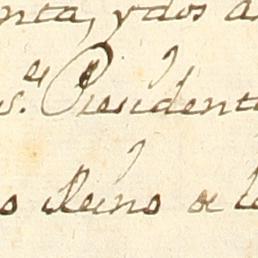 nta, y dos a
s.es Presidente
o Reino de l